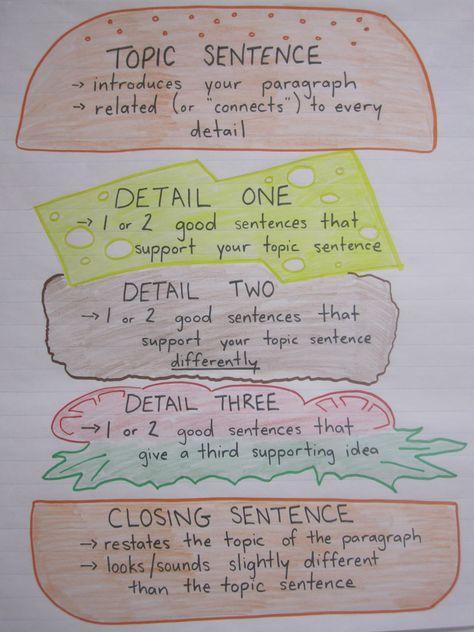 TOPIC SENTENCE
→ introduces your paragraph
→ related (or "connects") to every
detail
DETAIL ONE
→ 1 or 2 good sentences that
support your topic sentence
DETAIL TWO
→ 1 or 2 good sentences that
support your topic sentence
differently
DETAIL THREE
→ 1 or 2 good sentences that
give a third supporting idea
CLOSING SENTENCE
→ restates the topic of the paragraph
→ looks/sounds slightly different
than the topic sentence